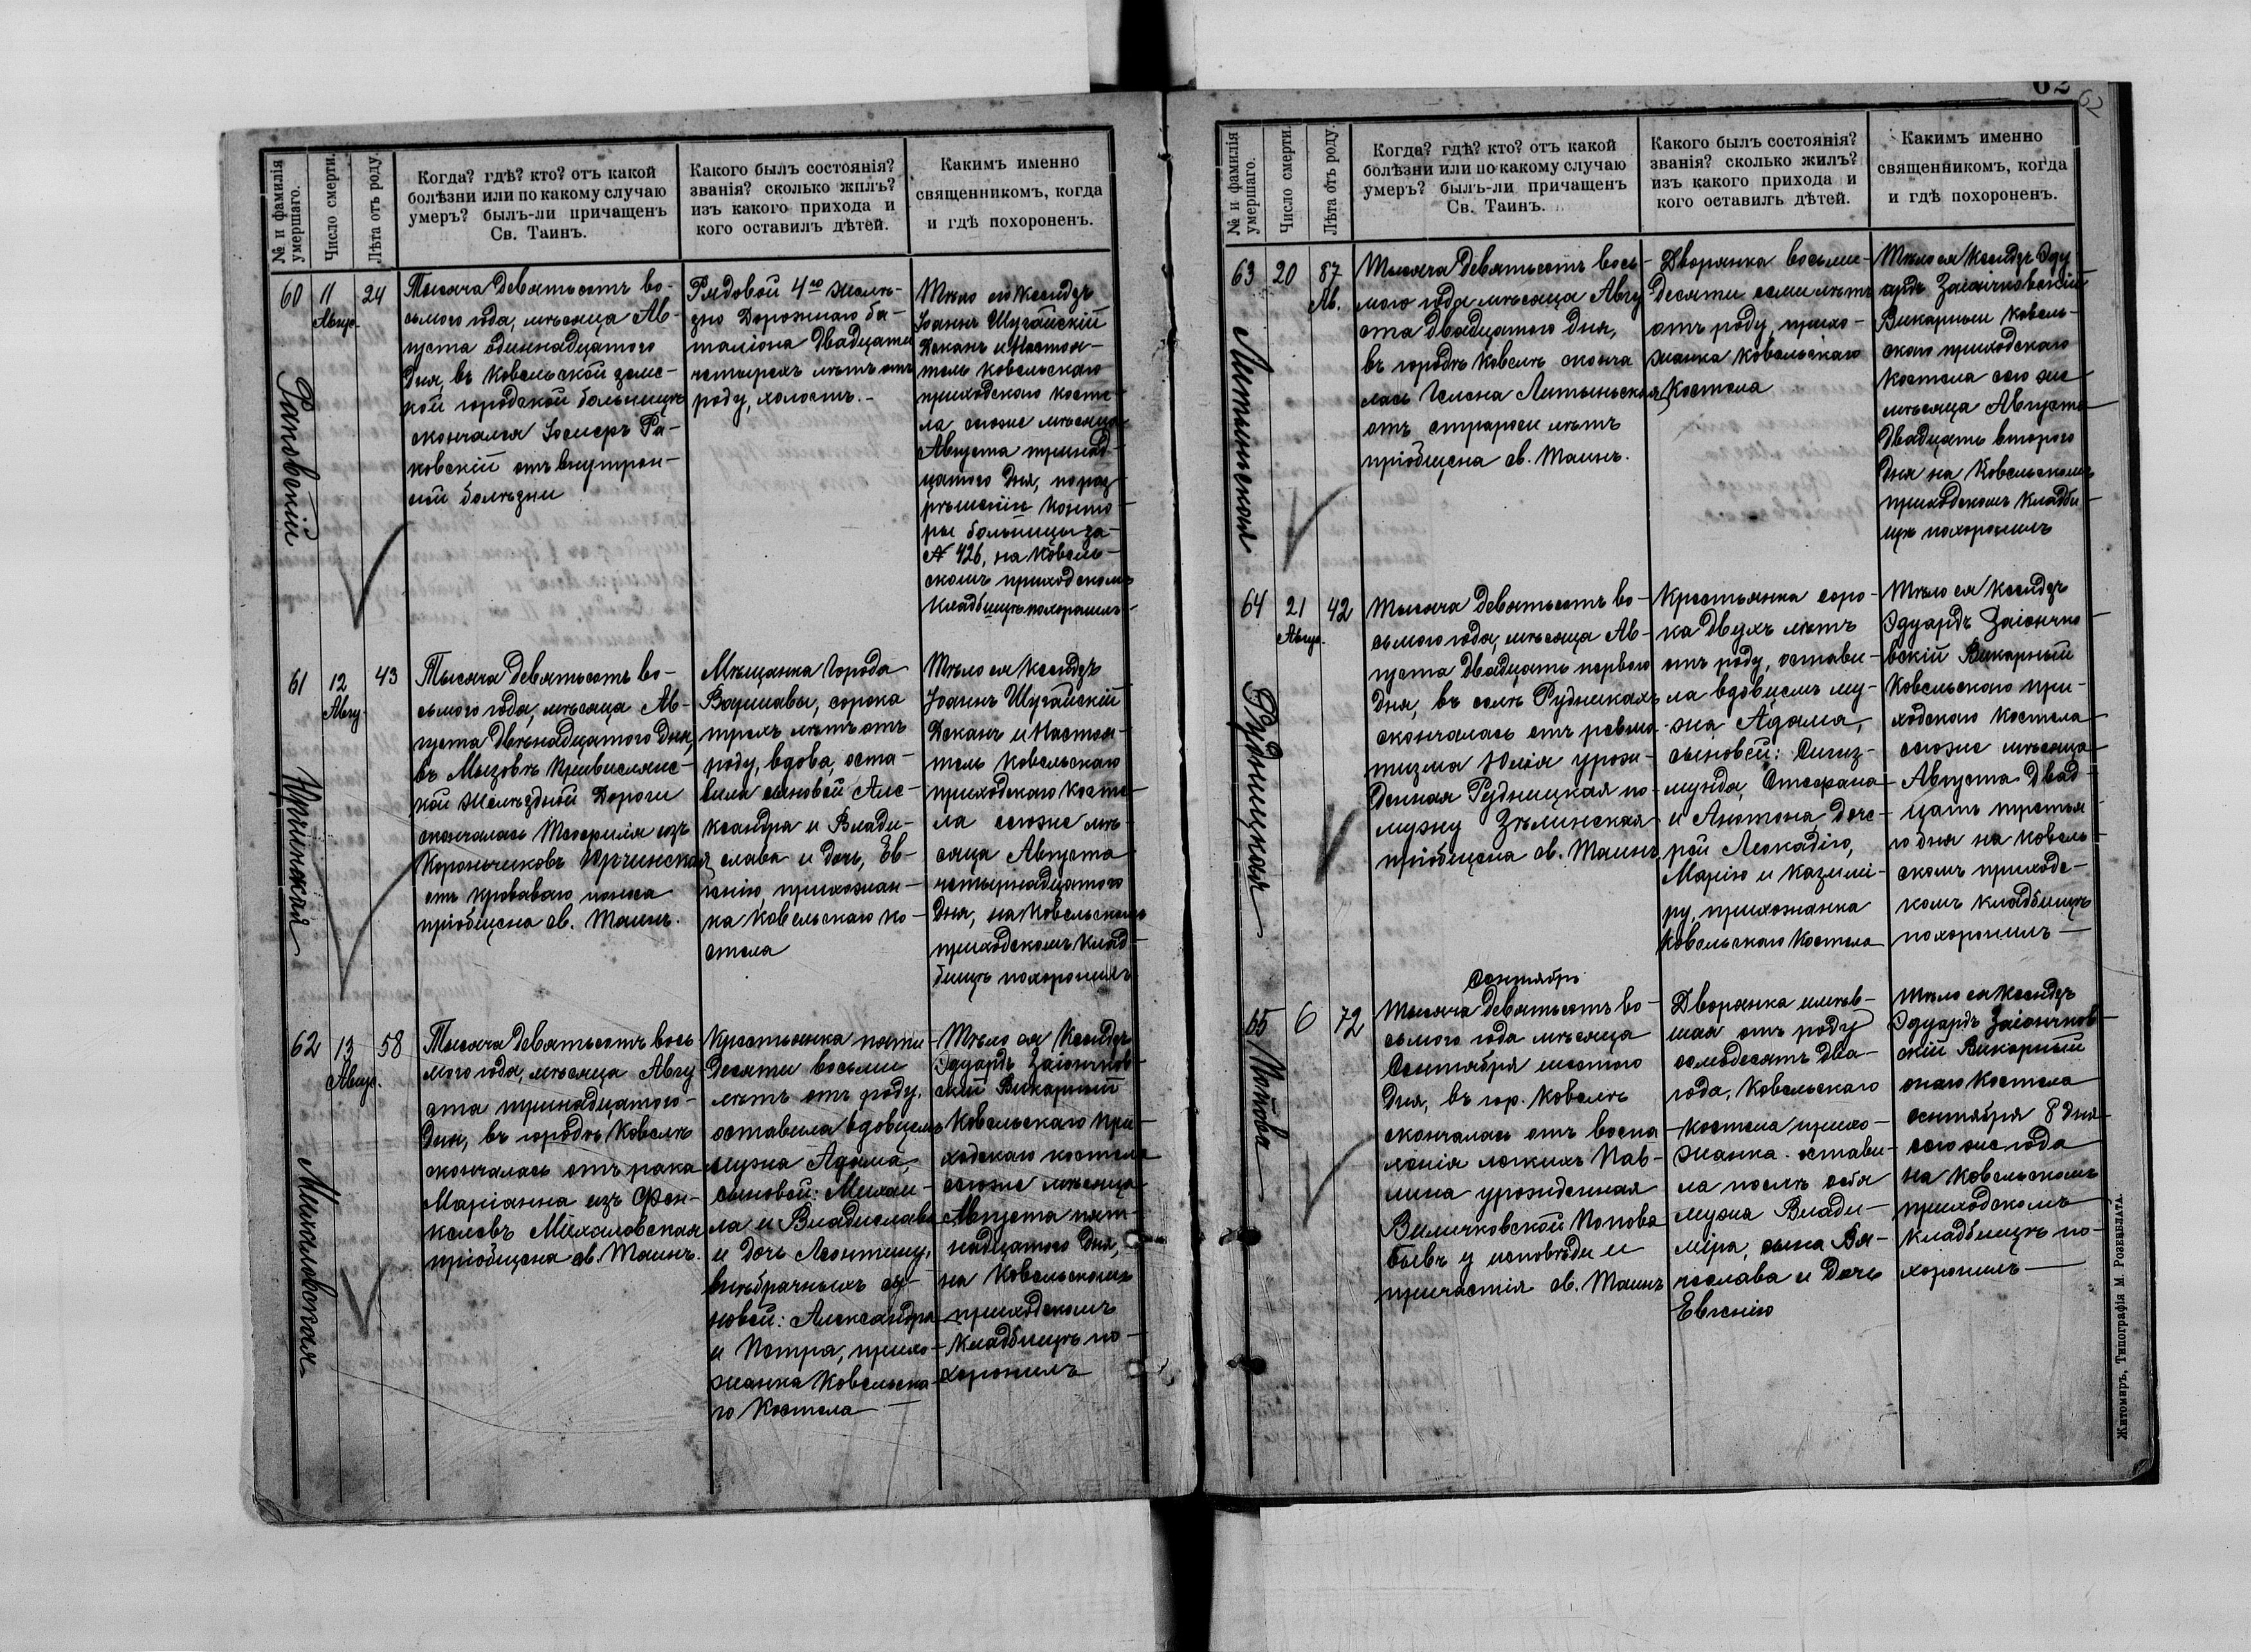 № и фамилія
умершаго.
Число смерти.
Лѣта отъ роду.
Когда? гдѣ? кто? отъ какой
болѣзни или по какому случаю
умеръ? былъ-ли причащенъ
Св. Таинъ.
Какого былъ состоянія?
званія? сколько жилъ?
изъ какого прихода и
кого оставилъ дѣтей.
Какимъ именно
священникомъ, когда
и гдѣ похороненъ.
60
Раковскій
11
Авгус.
24
Тысяча девятьсотъ во-
сьмого года, мѣсяца Ав-
густа одиннадцатого
дня, въ Ковельской земс-
кой городской больницѣ
скончался Іосифъ Ра-
ковскій отъ внутрен-
ней болѣзни
Рядовой 4го желѣ-
зно дорожнаго ба-
таліона двадцати
четырехъ лѣтъ отъ
роду, холостъ.-
Тѣло его Ксендзъ
Іоаннъ Шугайскій
Деканъ и Настоя-
тель Ковельскаго
приходскаго косте-
ла сегоже мѣсяца
Августа тринад-
цатого дня, по раз-
рѣшенію Конто-
ры больницы за
№ 426, на Ковель-
скомъ приходскомъ
кладбищѣ похоронилъ
61
Юрчинская
12
Авгу.
43
Тысяча девятьсотъ во-
сьмого года, мѣсяца Ав-
густа двѣнадцатого дня,
въ Мызовѣ Привислянс-
кой желѣздной дороги
скончалась Теофилія изъ
Короньчиковъ Юрчинская
отъ кроваваго поноса
пріобщена св. Таинъ.
Мѣщанка города
Варшавы, сорока
трехъ лѣтъ отъ
роду, вдова, оста-
вила сыновей Але-
ксандра и Влади-
слава и дочь, Ев-
генію, прихожан-
ка Ковельскаго ко-
стела
Тѣло ея Ксендзъ
Іоаннъ Шугайскій
Деканъ и Настоя-
тель Ковельскаго
приходскаго косте-
ла сегоже мѣ-
сяца Августа
четырнадцатого
дня, на Ковельскомъ
приходскомъ клад-
бищѣ похоронилъ
62
Михаловская
13
Авгус.
58
Тысяча девятьсотъ вось
мого года, мѣсяца Авгу
ста тринадцатого
дня, въ городѣ Ковелѣ
скончалась отъ рака
Маріанна изъ Фен-
келевъ Михаловская
пріобщена св. Таинъ.
Крестьянка пяти-
десяти восьми
лѣтъ отъ роду,
оставила вдовцемъ
мужа Адама,
сыновей: Михаи-
ла и Владислава
и дочь Леонтину,
внѣбрачныхъ сы-
новей: Александра
и Петра, прихо-
жанка Ковельска-
го Костела
Тѣло ея Ксендзъ
Эдуардъ Заіончков-
скій Викарный
Ковельскаго при-
ходскаго костела
сегоже мѣсяца
Августа пят-
надцатого дня,
на Ковельскомъ
приходскомъ
кладбищѣ по-
хоронилъ
62
62
№ и фамилія
умершаго.
Число смерти.
Лѣта отъ роду.
Когда? гдѣ? кто? отъ какой
болѣзни или по какому случаю
умеръ? былъ-ли причащенъ
Св. Таинъ.
Какого былъ состоянія?
званія? сколько жилъ?
изъ какого прихода и
кого оставилъ дѣтей.
Какимъ именно
священникомъ, когда
и гдѣ похороненъ.
63
Литыньская
20
87
Ав.
Тысяча девятьсотъ вось-
мого года мѣсяца Авгу
ста двадцатого дня,
въ городѣ Ковелѣ сконча
лась Гелена Литыньская
отъ старости лѣтъ
пріобщена св. Таинъ.
Дворянка восьми-
десяти семи лѣтъ
отъ роду, прихо-
жанка Ковельскаго
Костела
Тѣло ея Ксендзъ Эду
ардъ Заіончковскій
Викарный Ковель-
скаго приходскаго
костела сего же
мѣсяца Августа
двадцать второго
дня на Ковельскомъ
приходскомъ кладби-
щѣ похоронилъ
64
Рудницкая
21
Авгус.
42
Тысяча девятьсотъ во-
сьмого года, мѣсяца Ав-
густа двадцать первого
дня, въ селѣ Рудникахъ
скончалась отъ ревма-
тизма Юлія урож-
денная Рудницкая по-
мужу Зѣлинская
пріобщена св. Таинъ
Крестьянка соро-
ка двухъ лѣтъ
отъ роду, остави-
ла вдовцемъ му-
жа Адама,
сыновей: Сигиз-
мунда, Стефана
и Антона доче-
рей Леокадію,
Марію и Казими-
ру, прихожанка
Ковельскаго Костела
Тѣло ея Ксендзъ
Эдуардъ Заіончко-
вскій Викарный
Ковельскаго при-
ходскаго Костела
сегоже мѣсяца
Августа двад-
цать третья
го дня на Ковель-
скомъ приходс-
комъ кладбищѣ
похоронилъ
65
Попова
6
72
Сентябрь
Тысяча девятьсотъ во-
сьмого года мѣсяца
Сентября шестого
дня, въ гор. Ковелѣ
скончалась отъ воспа
ленія легкихъ Пав-
лина урожденная
Вилычковской Попова
бывъ у исповѣди и
причастія св. Таинъ
Дворянка имѣв-
шая отъ роду
семьдесятъ два
года, Ковельскаго
костела прихо-
жанка. остави-
ла послѣ себя
мужа Влади-
міра, сына Вя-
чеслава и дочь
Евгенію
Тѣло ея Ксендзъ
Эдуардъ Заіончков-
скій Викарный
онаго Костела
сентября 8 дня
сего же года
на Ковельскомъ
приходскомъ
кладбищѣ по-
хоронилъ
Житомиръ, Типографія М. Розенблата.